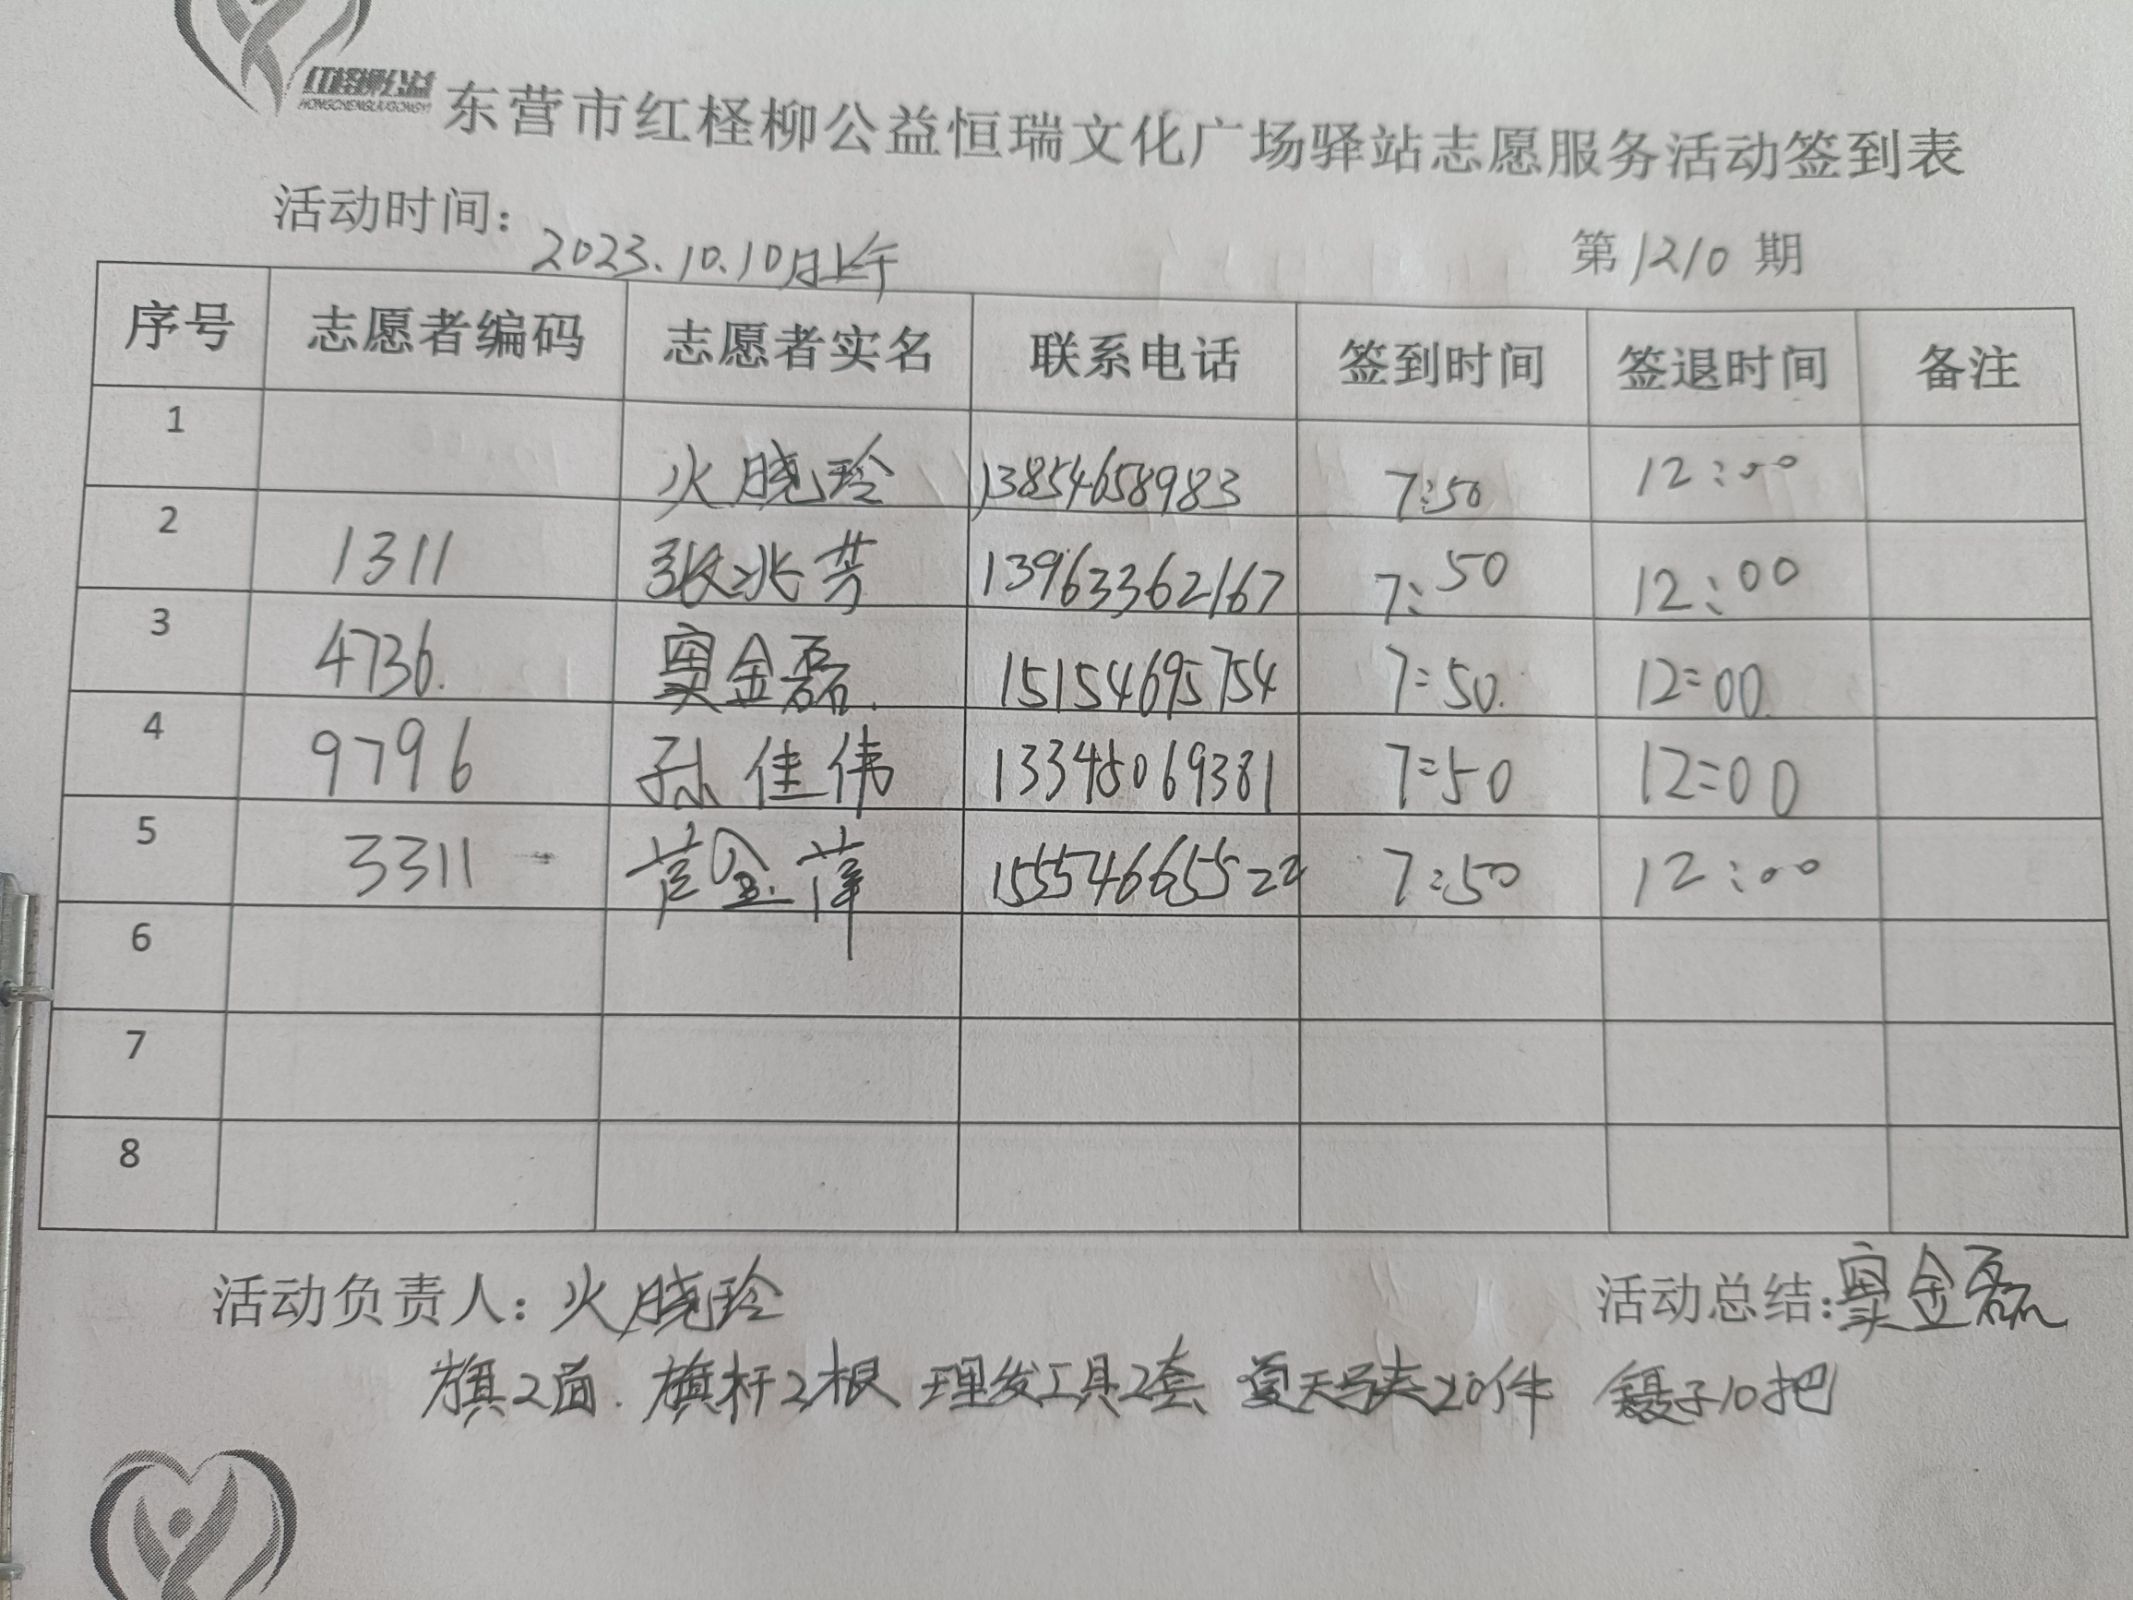 红柽柳公益
HONGCHENGLIUGONGYI
东营市红柽柳公益恒瑞文化广场驿站志愿服务活动签到表
活动时间：2023.10.10日上午 第1210期
序号 志愿者编码 志愿者实名 联系电话 签到时间 签退时间 备注
1 火晓玲 13854658983 7:50 12:00
2 1311 张兆芳 13963362167 7:50 12:00
3 4736. 窦金磊. 15154695754 7:50. 12:00.
4 9796 孙佳伟 13345069381 7:50 12:00
5 3311 金萍 15554665522 7:50 12:00
6
7
8
活动负责人：火晓玲 活动总结：窦金磊
旗2面. 旗杆2根 理发工具2套 夏天马夹20件 镊子10把